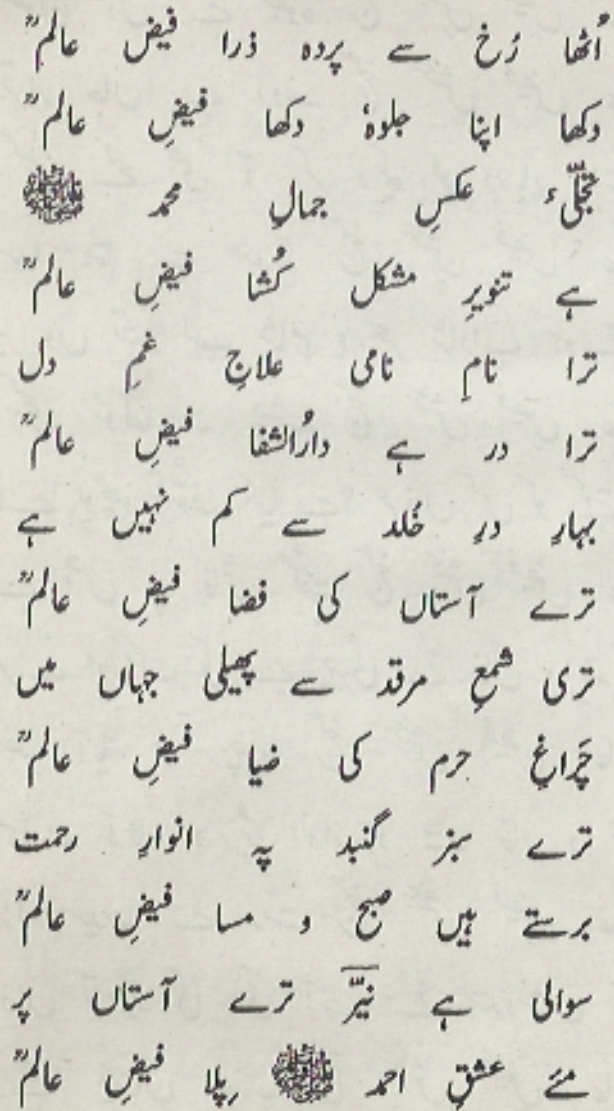 اُٹھا رُخ سے پردہ ذرا فیضِ عالمؒ
دکھا اپنا جلوہٗ دکھا فیضِ عالمؒ
تجلّیٔ عکسِ جمالِ محمد ﷺ
ہے تنویرِ مشکل کُشا فیضِ عالمؒ
ترا نامِ نامی علاجِ غمِ دل
ترا در ہے دارُالشفا فیضِ عالمؒ
بہارِ درِ خُلد سے کم نہیں ہے
ترے آستاں کی فضا فیضِ عالمؒ
تری شمعِ مرقد سے پھیلی جہاں میں
چَراغِ حرم کی ضیا فیضِ عالمؒ
ترے سبز گنبد پہ انوارِ رحمت
برستے ہیں صبح و مسا فیضِ عالمؒ
سوالی ہے نیّرؔ ترے آستاں پر
مئے عشقِ احمد ﷺ پِلا فیضِ عالمؒ